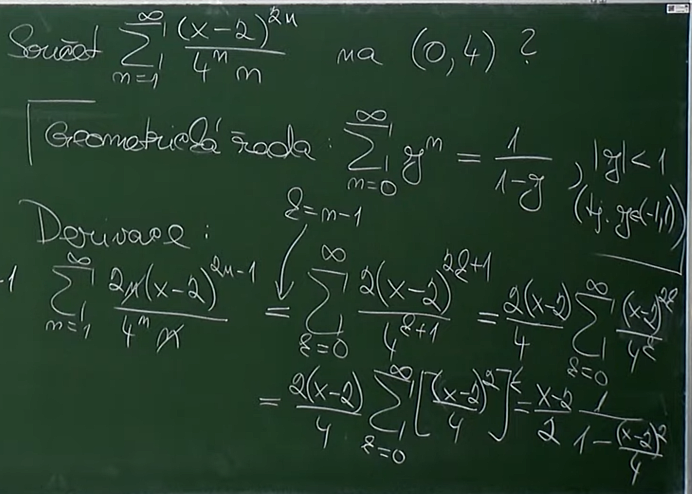 Součet ∑_{n=1}^{∞} (x-2)^{2n} / (4^n n) na (0,4) ?
Geometrická řada: ∑_{n=0}^{∞} y^n = 1/(1-y), |y|<1
(tj. y∈(-1,1))
k=n-1
Derivace:
∑_{n=1}^{∞} 2n(x-2)^{2n-1} / (4^n n) = ∑_{k=0}^{∞} 2(x-2)^{2k+1} / 4^{k+1} = 2(x-2)/4 ∑_{k=0}^{∞} (x-2)^{2k} / 4^k
= 2(x-2)/4 ∑_{k=0}^{∞} [(x-2)^2/4]^k = (x-2)/2 · 1/(1-(x-2)^2/4)